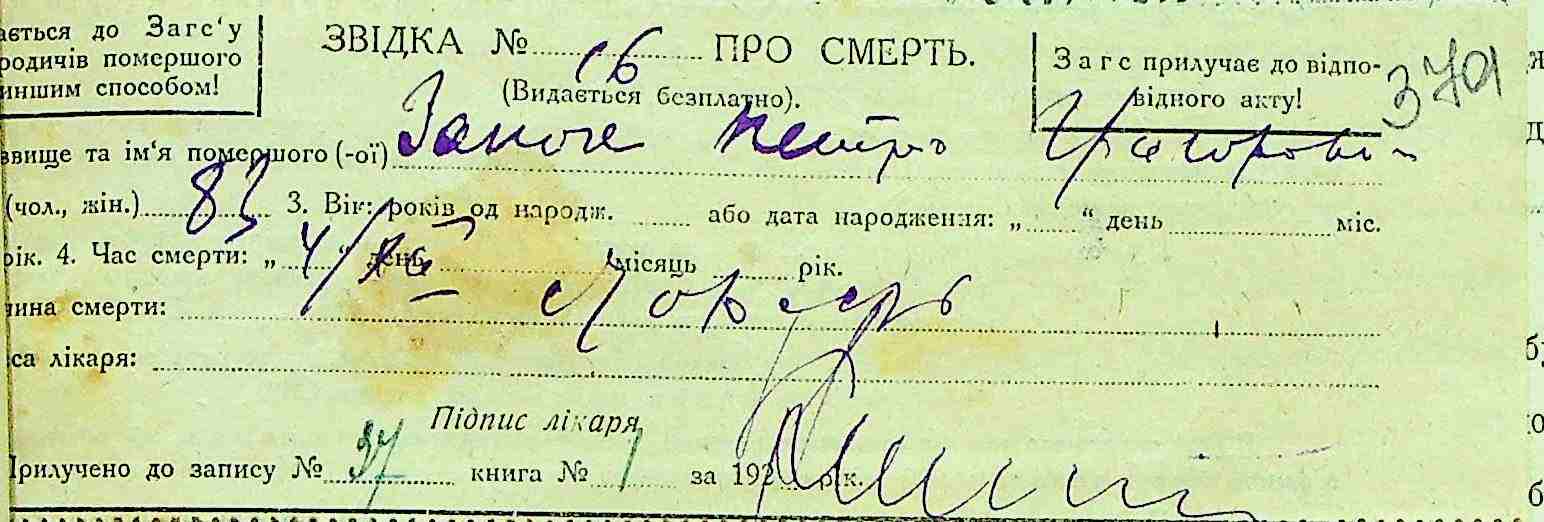 ається до Загс'у
родичів помершого
иншим способом!
ЗВІДКА № 16 ПРО СМЕРТЬ.
(Видається безплатно).
Загс прилучає до відпо-
відного акту!
379
звище та ім'я помершого (-ої) Петро
(чол., жін.) 83 3. Вік: років од народж. або дата народження: „ " день міс.
рік. 4. Час смерти: „ 4/ " день місяць рік.
чина смерти:
са лікаря:
Підпис лікаря
Прилучено до запису № 37 книга № 1 за 192 рік.